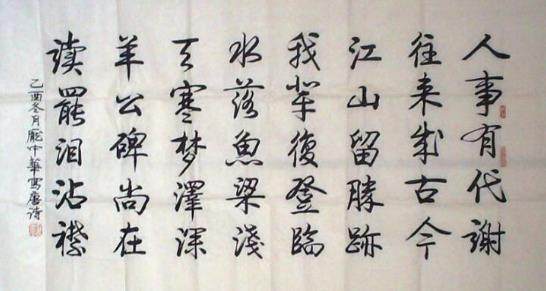 人事有代謝
往来成古今
江山留勝跡
我輩復登臨
水落魚梁淺
天寒梦澤深
羊公碑尚在
读罷泪沾襟
乙酉冬月龐中華寫唐诗